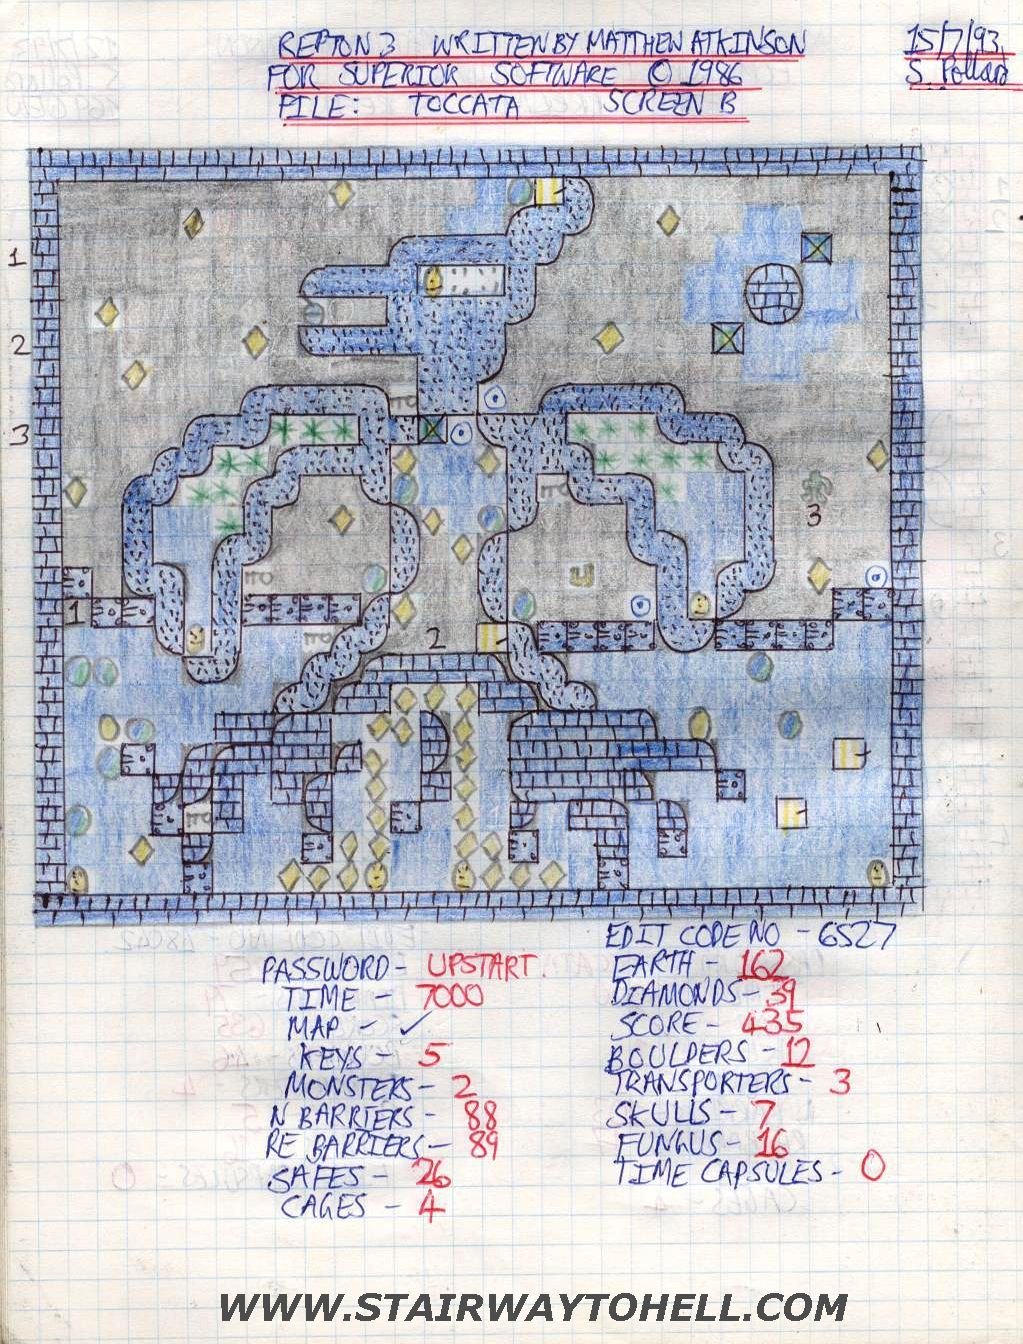 REPTON 3 WRITTEN BY MATTHEW ATKINSON
FOR SUPERIOR SOFTWARE © 1986
FILE: TOCCATA SCREEN B
15/7/93
S. Pollard
1
2
3
3
1
2
PASSWORD - UPSTART.
TIME - 7000
MAP - ✓
KEYS - 5
MONSTERS - 2
N BARRIERS - 88
RE BARRIERS - 89
SAFES - 26
CAGES - 4
EDIT CODE NO - 6527
EARTH - 162
DIAMONDS - 39
SCORE - 435
BOULDERS - 12
TRANSPORTERS - 3
SKULLS - 7
FUNGUS - 16
TIME CAPSULES - 0
WWW.STAIRWAYTOHELL.COM